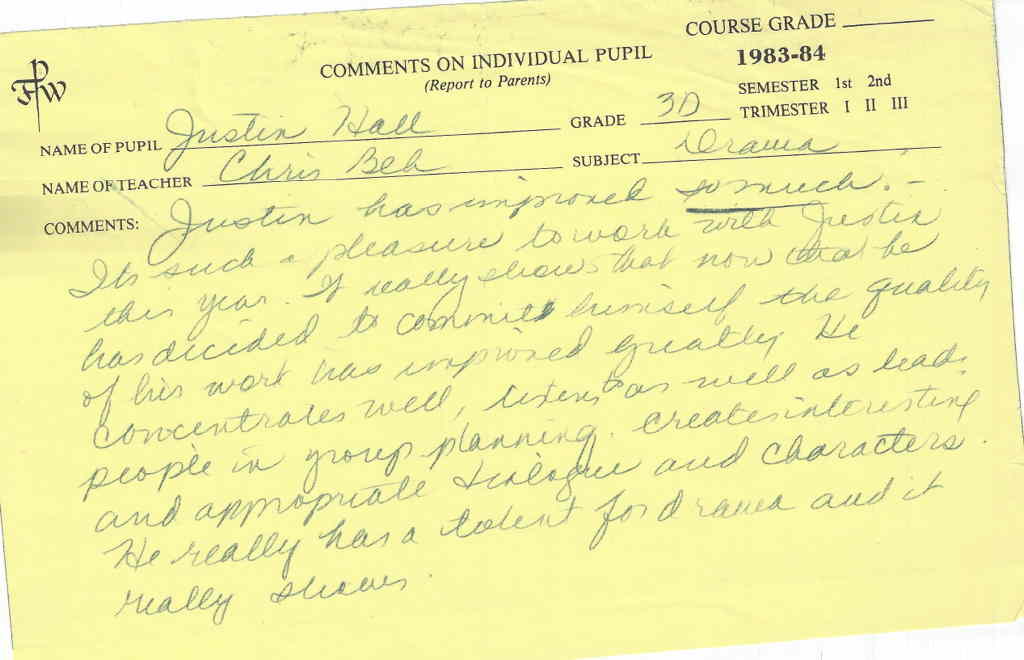 COURSE GRADE
COMMENTS ON INDIVIDUAL PUPIL
1983-84
(Report to Parents)
SEMESTER 1st 2nd
FPW
TRIMESTER I II III
NAME OF PUPIL Justin Hall GRADE 3D
NAME OF TEACHER Chris Beh SUBJECT Drama
COMMENTS: Justin has improved so much. -
Its such a pleasure to work with Justin
this year. It really shows that now that he
has decided to commit himself the quality
of his work has improved greatly. He
concentrates well, listens as well as leads
people in group planning. Creates interesting
and appropriate dialogue and characters.
He really has a talent for drama and it
really shows.